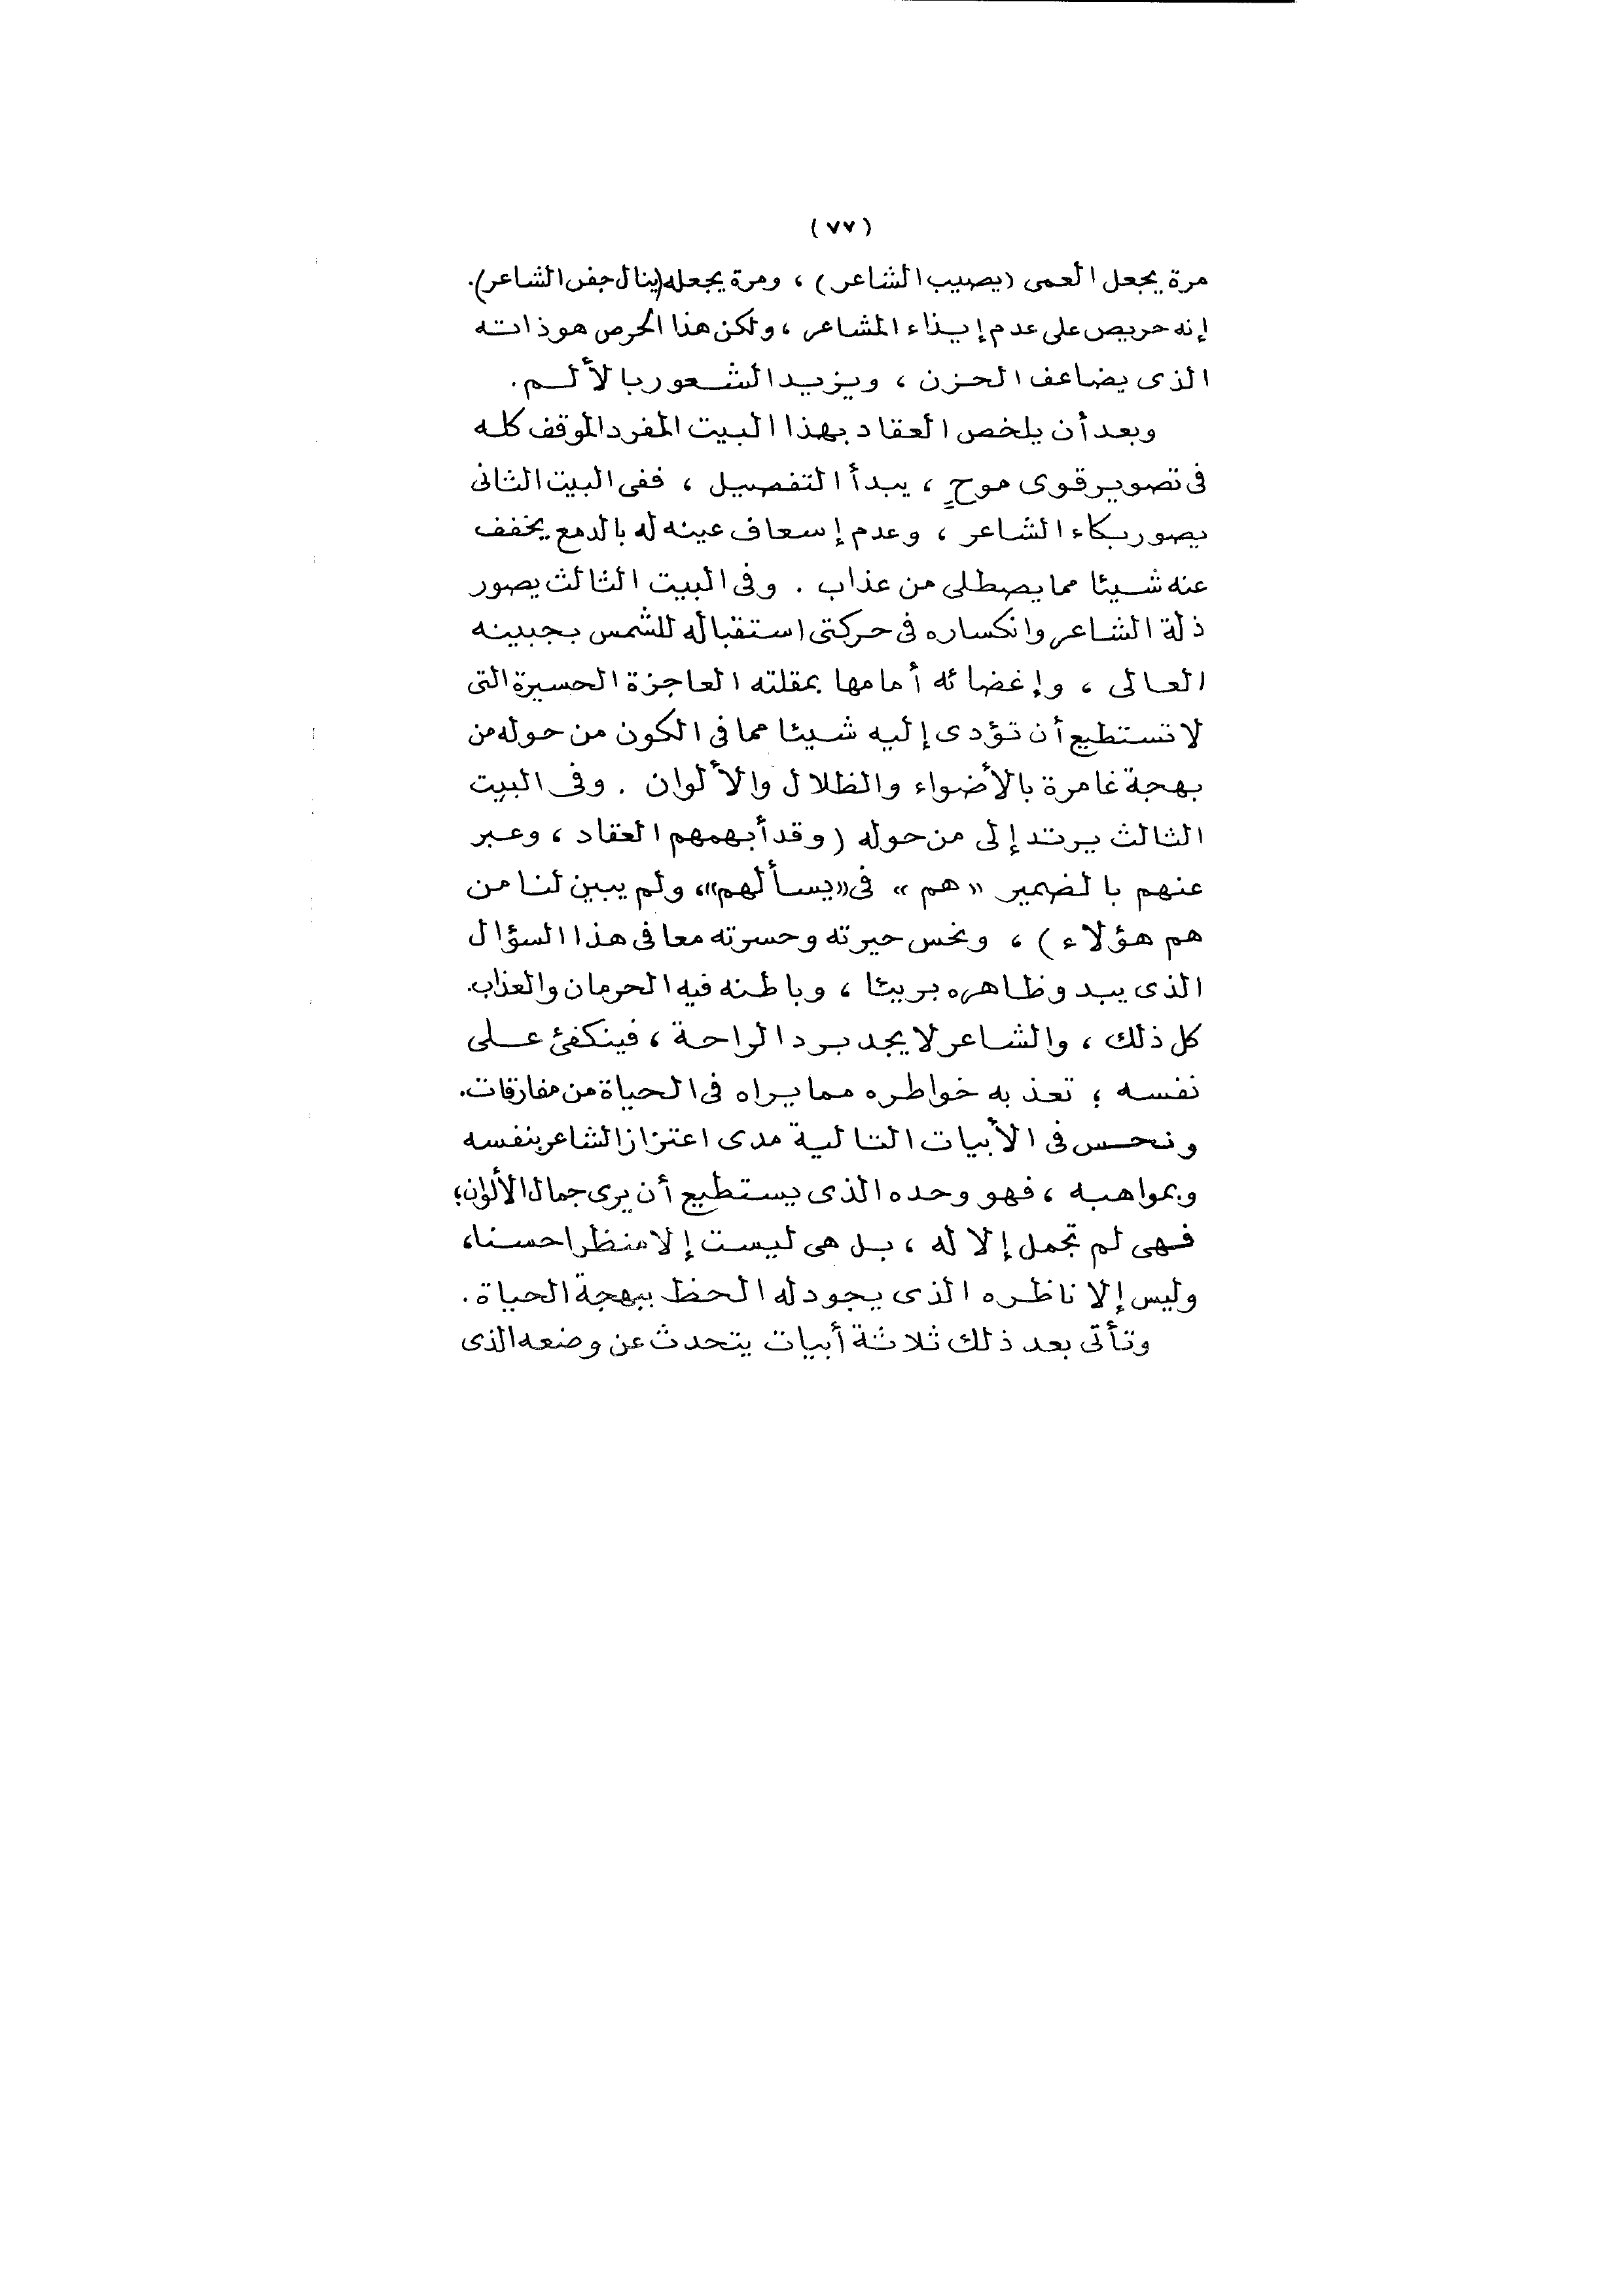 (٧٧)
مرة يجعل العمى (يصيب الشاعر) ، ومرة يجعله (ينال جفن الشاعر).
إنه حريص على عدم إيذاء المشاعر ، ولكن هذا الحرص هو ذاته
الذى يضاعف الحزن ، ويزيد الشعور بالألم .
وبعد أن يلخص العقاد بهذا البيت المفرد الموقف كله
فى تصوير قوى موحٍ ، يبدأ التفصيل ، ففى البيت الثانى
يصور بكاء الشاعر ، وعدم إسعاف عينه له بالدمع يخفف
عنه شيئا مما يصطلى من عذاب . وفى البيت الثالث يصور
ذلة الشاعر وانكساره فى حركتى استقباله للشمس بجبينه
العالى ، وإغضائه أمامها بمقلته العاجزة الحسيرة التى
لا تستطيع أن تؤدى إليه شيئا مما فى الكون من حوله من
بهجة غامرة بالأضواء والظلال والألوان . وفى البيت
الثالث يرتد إلى من حوله ( وقد أبهمهم العقاد ، وعبر
عنهم بالضمير «هم» فى «يسألهم»، ولم يبين لنا من
هم هؤلاء ) ، ونحس حيرته وحسرته معا فى هذا السؤال
الذى يبدو ظاهره بريئا ، وباطنه فيه الحرمان والعذاب.
كل ذلك ، والشاعر لا يجد برد الراحة ، فينكفئ على
نفسه ؛ تعذبه خواطره مما يراه فى الحياة من مفارقات.
ونحس فى الأبيات التالية مدى اعتزاز الشاعر بنفسه
وبمواهبه ، فهو وحده الذى يستطيع أن يرى جمال الألوان؛
فهى لم تجمل إلا له ، بل هى ليست إلا منظرا حسنا،
وليس إلا ناظره الذى يجود له الحظ ببهجة الحياة .
وتأتى بعد ذلك ثلاثة أبيات يتحدث عن وضعه الذى